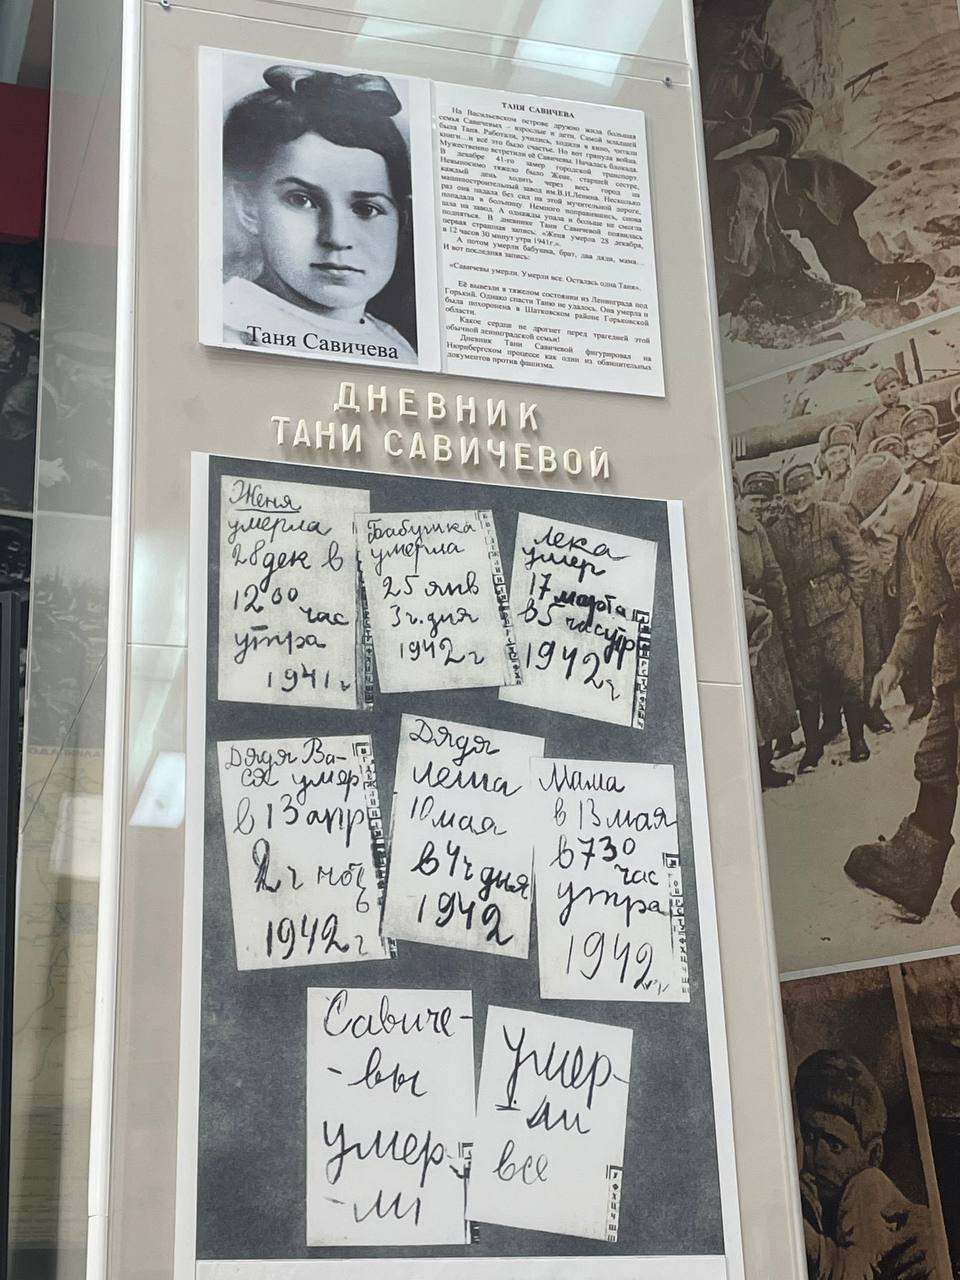 Таня Савичева
ТАНЯ САВИЧЕВА
На Васильевском острове дружно жила большая
семья Савичевых – взрослые и дети. Самой младшей
была Таня. Работали, учились, ходили в кино, читали
книги…и всё это было счастье. Но вот грянула война.
Мужественно встретили её Савичевы. Началась блокада.
В декабре 41-го замер городской транспорт.
Невыносимо тяжело было Жене, старшей сестре,
каждый день ходить через весь город на
машиностроительный завод им.В.И.Ленина. Несколько
раз она падала без сил на этой мучительной дороге,
попадала в больницу. Немного поправившись, снова
шла на завод. А однажды упала и больше не смогла
подняться. В дневнике Тани Савичевой появилась
первая страшная запись: «Женя умерла 28 декабря,
в 12 часов 30 минут утра 1941г.».
А потом умерли бабушка, брат, два дяди, мама…
И вот последняя запись:
«Савичевы умерли. Умерли все. Осталась одна Таня».
Её вывезли в тяжелом состоянии из Ленинграда под
Горький. Однако спасти Таню не удалось. Она умерла и
была похоронена в Шатковском районе Горьковской
области.
Какое сердце не дрогнет перед трагедией этой
обычной ленинградской семьи!
Дневник Тани Савичевой фигурировал на
Нюрнбергском процессе как один из обвинительных
документов против фашизма.
ДНЕВНИК
ТАНИ САВИЧЕВОЙ
Женя
умерла
28 дек в
12 00 час
утра
1941 г
Бабушка
умерла
25 янв
3 ч. дня
1942 г
Лека
умер
17 марта
в 5 час утр
1942 г
Дядя Ва-
ся умер
в 13 апр
2 ч ночь
1942 г
Дядя
Леша
10 мая
в 4 ч дня
1942
Мама
в 13 мая
в 7 30
час
утра
1942 г
Савиче-
-вы
умер-
-ли
Умер-
ли
все